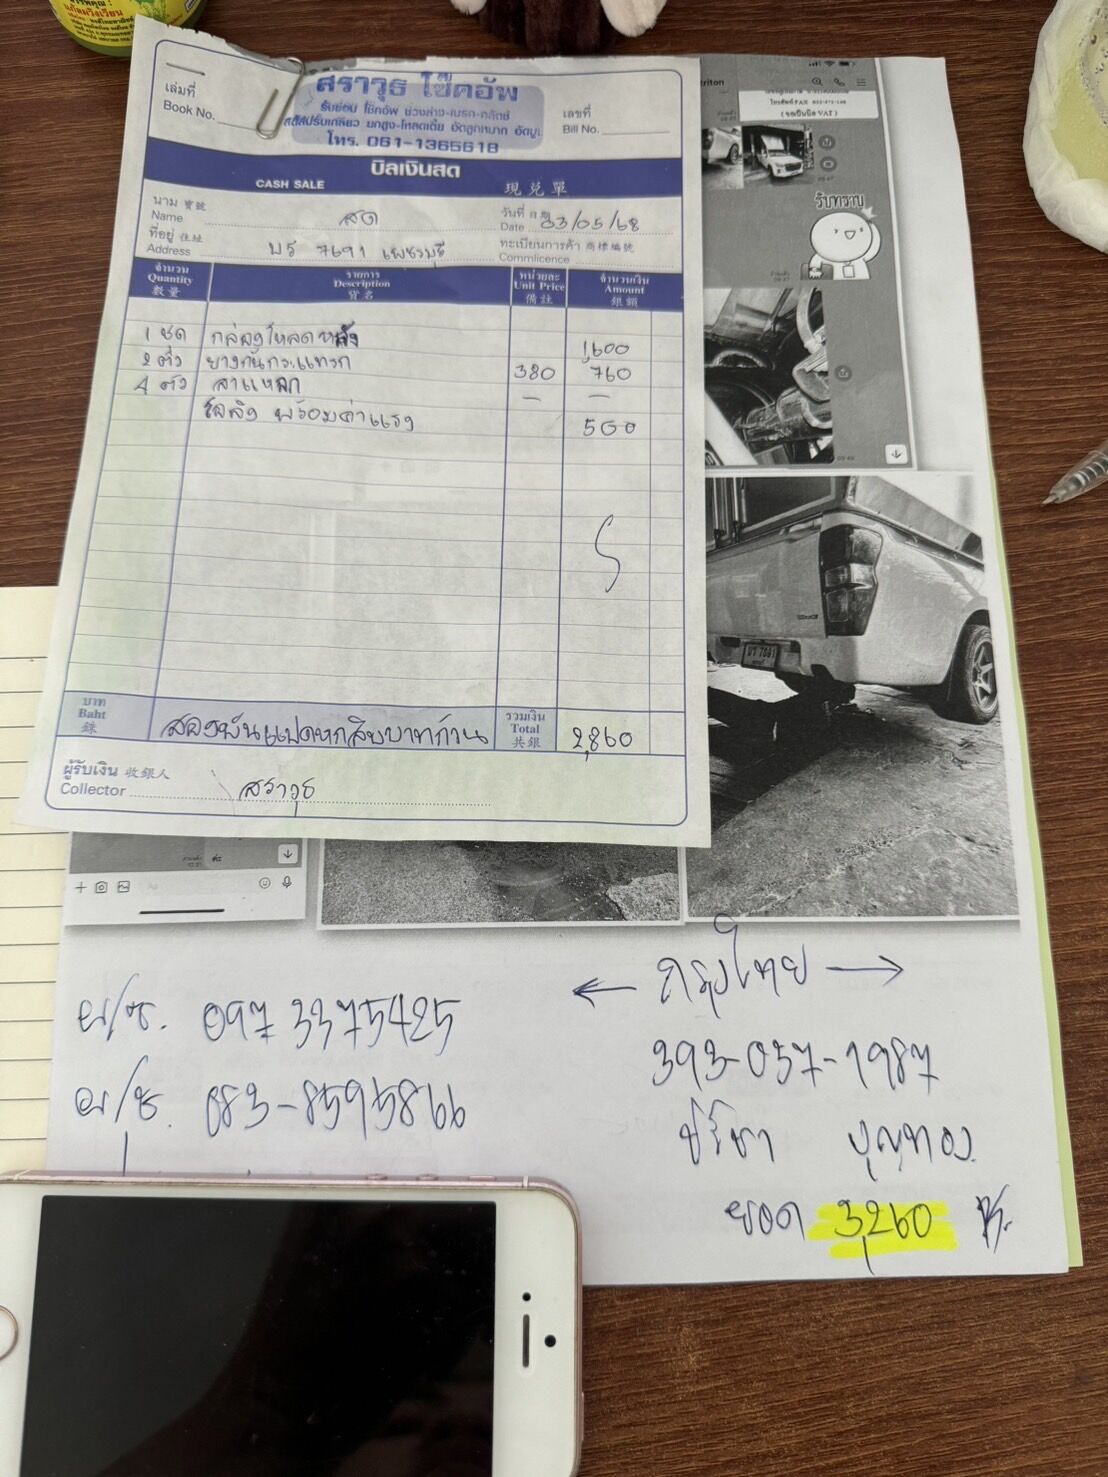 สราวุธ โช๊คอัพ
รับซ่อม โช๊คอัพ ช่วงล่าง-เบรก-คลัตช์
สตัสปรับเกลียว ยกสูง-โหลดเตี้ย อัดลูกหมาก อัดบูช
โทร. 061-1365618
เล่มที่
Book No.
เลขที่
Bill No.
บิลเงินสด
CASH SALE 現兌單
นาม 寶號
Name สด
วันที่
Date 03/05/68
ที่อยู่ 住址
Address บร 7691 เพชรบุรี
ทะเบียนการค้า 商標編號
Commlicence.
จำนวน
Quantity
數量
รายการ
Description
貨名
หน่วยละ
Unit Price
備註
จำนวนเงิน
Amount
銀額
1 ชุด กล่องโหลดหลัง 1,600
2 ตัว ยางกันกระแทรก 380 760
4 ตัว สาแหลก - -
โอลิง พร้อมค่าแรง 500
บาท
Baht
銖
สองพันแปดหกสิบบาทถ้วน
รวมเงิน
Total
共銀
2,860
ผู้รับเงิน 收銀人
Collector สราวุธ
triton
(ขอเป็นบิล VAT)
รับทราบ
09:49
← กรุงไทย →
393-037-1987
ปรีชา บุญทอง
ยอด 3,260 บ.
097 3375425
083-8595866